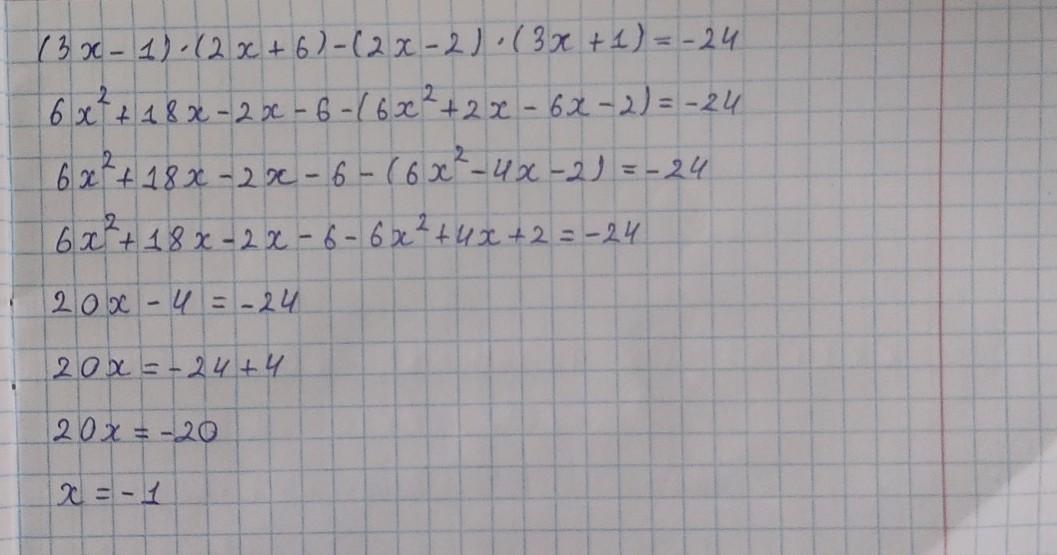 (3x-1)·(2x+6)-(2x-2)·(3x+1)=-24
6x²+18x-2x-6-(6x²+2x-6x-2)=-24
6x²+18x-2x-6-(6x²-4x-2)=-24
6x²+18x-2x-6-6x²+4x+2=-24
20x-4=-24
20x=-24+4
20x=-20
x=-1